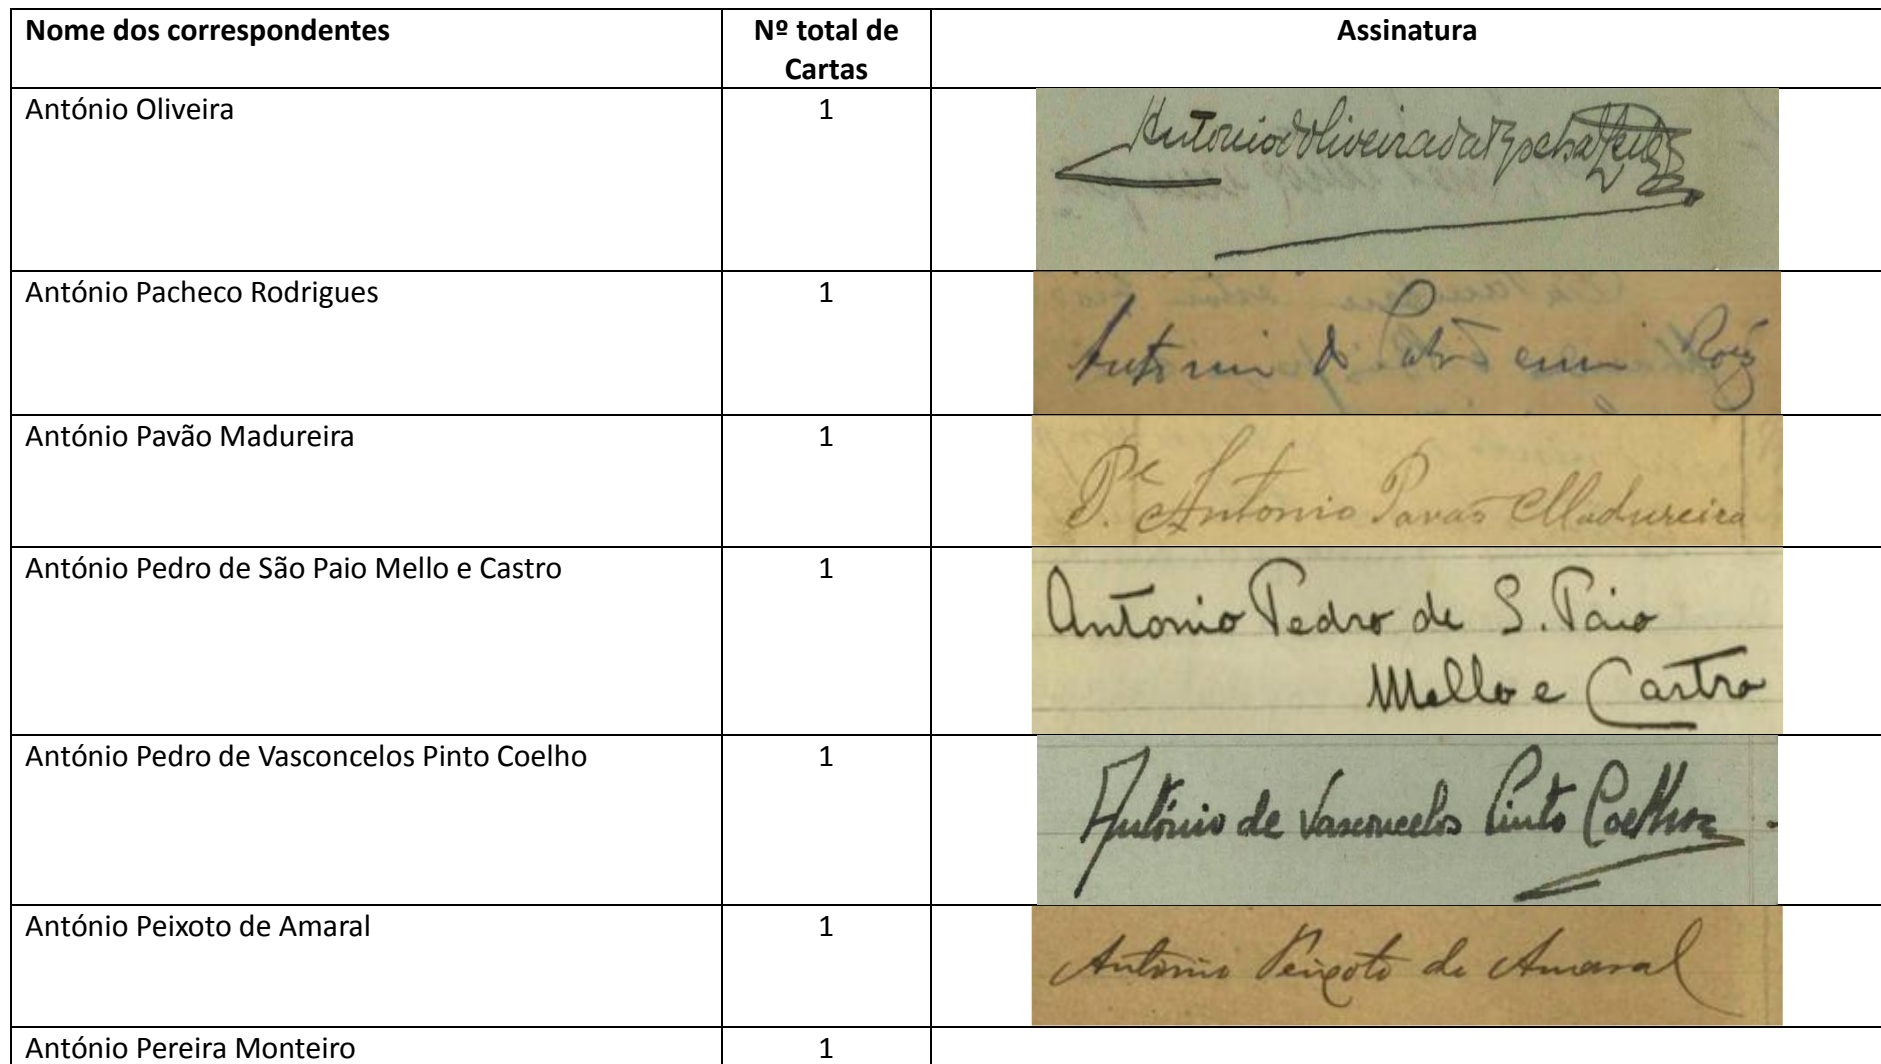 Nome dos correspondentes
Nº total de Cartas
Assinatura
António Oliveira
1
Antonio d'Oliveira da Rocha
António Pacheco Rodrigues
1
António Pavão Madureira
1
P.e Antonio Pavão Madureira
António Pedro de São Paio Mello e Castro
1
Antonio Pedro de S. Paio
Mello e Castro
António Pedro de Vasconcelos Pinto Coelho
1
António de Vasconcelos Pinto Coelho
António Peixoto de Amaral
1
Antonio Peixoto de Amaral
António Pereira Monteiro
1